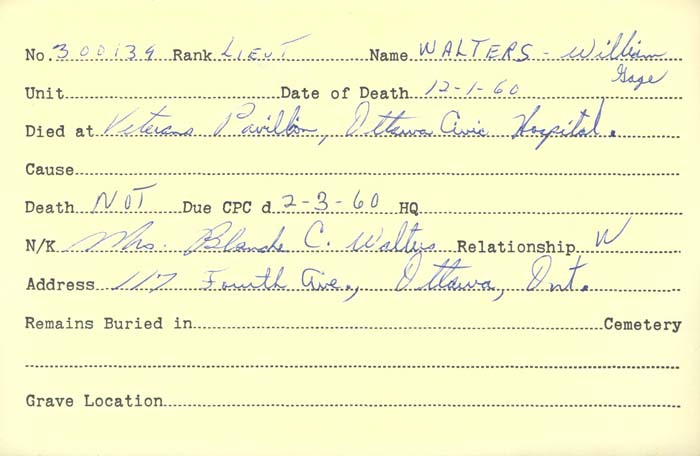 No. 300139 Rank LIEUT Name WALTERS - William
Gage
Unit Date of Death 12-1-60
Died at Veterans Pavillion, Ottawa Civic Hospital.
Cause
Death NOT Due CPC d 2-3-60 HQ
N/K Mrs. Blanche C. Walters Relationship W
Address 117 Fourth Ave., Ottawa, Ont.
Remains Buried in Cemetery
Grave Location